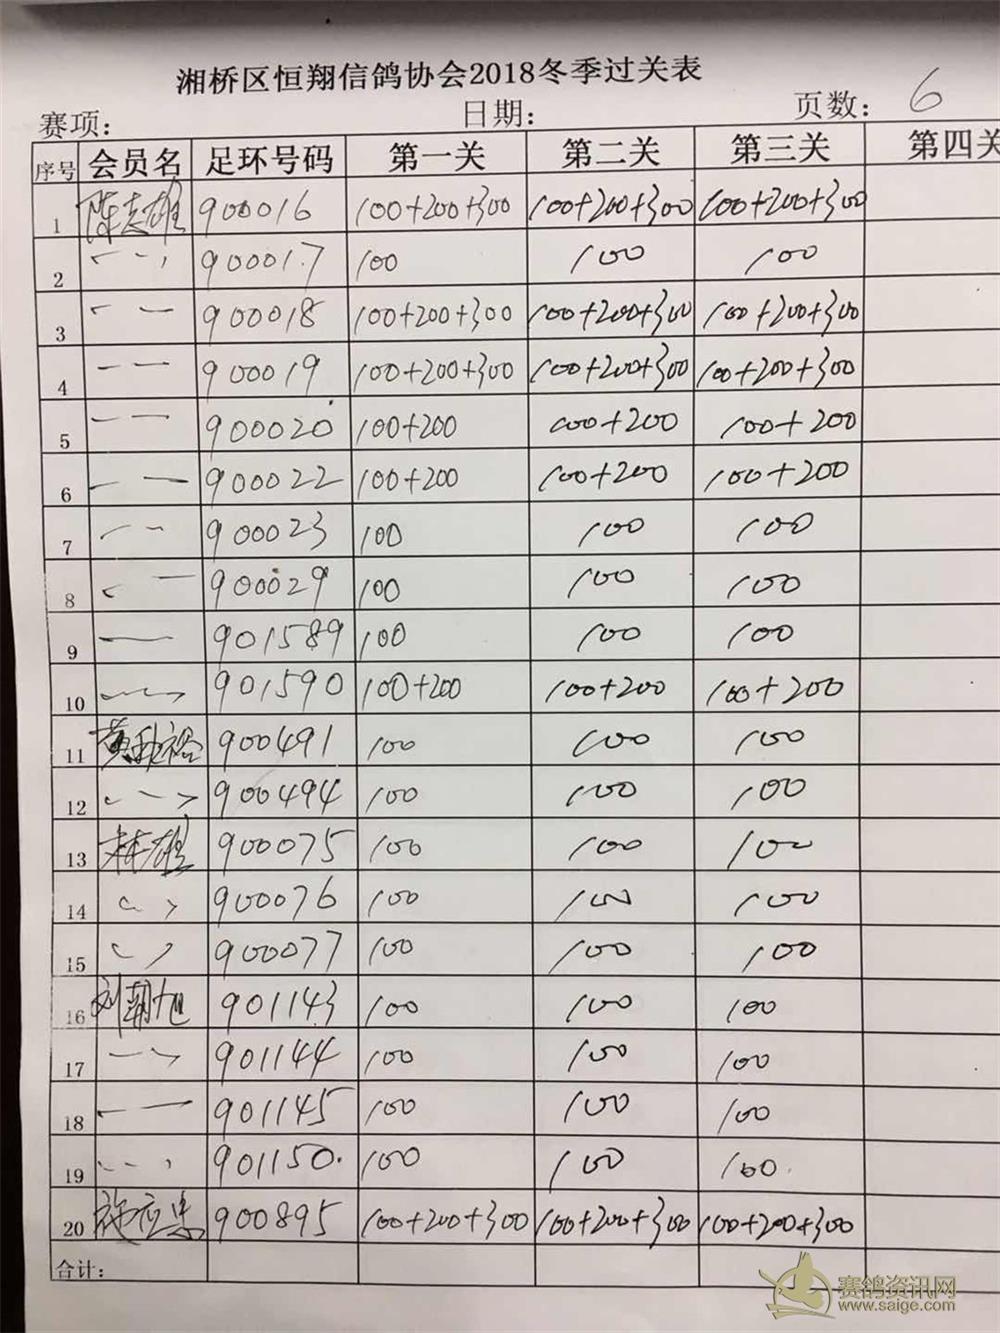 湘桥区恒翔信鸽协会2018冬季过关表
赛项: 日期: 页数: 6
序号 会员名 足环号码 第一关 第二关 第三关 第四关
1 陈志雄 900016 100+200+300 100+200+300 100+200+300
2 900017 100 100 100
3 900018 100+200+300 100+200+300 100+200+300
4 900019 100+200+300 100+200+300 100+200+300
5 900020 100+200 100+200 100+200
6 900022 100+200 100+200 100+200
7 900023 100 100 100
8 900029 100 100 100
9 901589 100 100 100
10 901590 100+200 100+200 100+200
11 900491 100 100 100
12 900494 100 100 100
13 林雄 900075 100 100 100
14 900076 100 100 100
15 900077 100 100 100
16 刘朝旭 901143 100 100 100
17 901144 100 100 100
18 901145 100 100 100
19 901150 100 100 100
20 施应忠 900895 100+200+300 100+200+300 100+200+300
合计:
赛鸽资讯网
www.saige.com